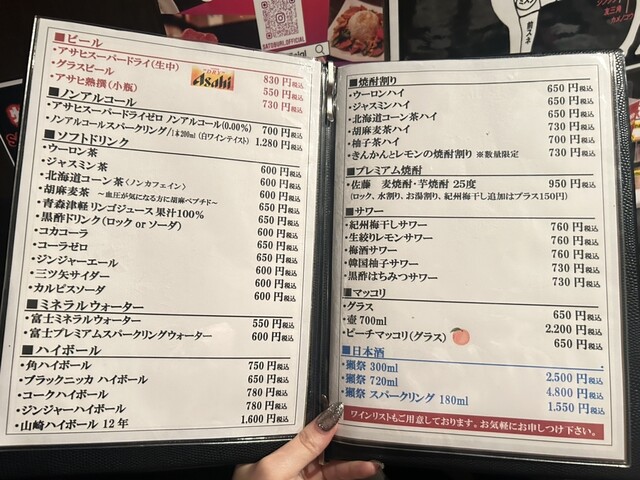 SATSURI_OFFICIAL
■ビール
・アサヒスーパードライ(生中) 830円税込
・グラスビール 550円税込
・アサヒ熟撰(小瓶) 730円税込
Asahi
■ノンアルコール
・アサヒスーパードライゼロ ノンアルコール(0.00%) 700円税込
・ノンアルコールスパークリング/1本200ml (白ワインテイスト) 1.280円税込
■ソフトドリンク
・ウーロン茶 600円税込
・ジャスミン茶 600円税込
・北海道コーン茶〈ノンカフェイン〉 600円税込
・胡麻麦茶 ～血圧が気になる方に胡麻ペプチド～ 650円税込
・青森津軽リンゴジュース 果汁100% 650円税込
・黒酢ドリンク(ロック or ソーダ) 650円税込
・コカコーラ 600円税込
・コーラゼロ 650円税込
・ジンジャーエール 600円税込
・三ツ矢サイダー 600円税込
・カルピスソーダ 600円税込
■ミネラルウォーター
・富士ミネラルウォーター 550円税込
・富士プレミアムスパークリングウォーター 600円税込
■ハイボール
・角ハイボール 750円税込
・ブラックニッカ ハイボール 650円税込
・コークハイボール 780円税込
・ジンジャーハイボール 780円税込
・山崎ハイボール 12年 1.600円税込
■焼酎割り
・ウーロンハイ 650円税込
・ジャスミンハイ 650円税込
・北海道コーン茶ハイ 650円税込
・胡麻麦茶ハイ 730円税込
・柚子茶ハイ 700円税込
・きんかんとレモンの焼酎割り ※数量限定 730円税込
■プレミアム焼酎
・佐藤 麦焼酎・芋焼酎 25度 950円税込
(ロック、水割り、お湯割り、紀州梅干し追加はプラス150円)
■サワー
・紀州梅干しサワー 760円税込
・生絞りレモンサワー 760円税込
・梅酒サワー 760円税込
・韓国柚子サワー 730円税込
・黒酢はちみつサワー 730円税込
■マッコリ
・グラス 650円税込
・壺 700ml 2.200円税込
・ピーチマッコリ(グラス) 650円税込
■日本酒
・獺祭 300ml 2.500円税込
・獺祭 720ml 4.800円税込
・獺祭 スパークリング 180ml 1.550円税込
ワインリストもご用意しております。お気軽にお申しつけ下さい。